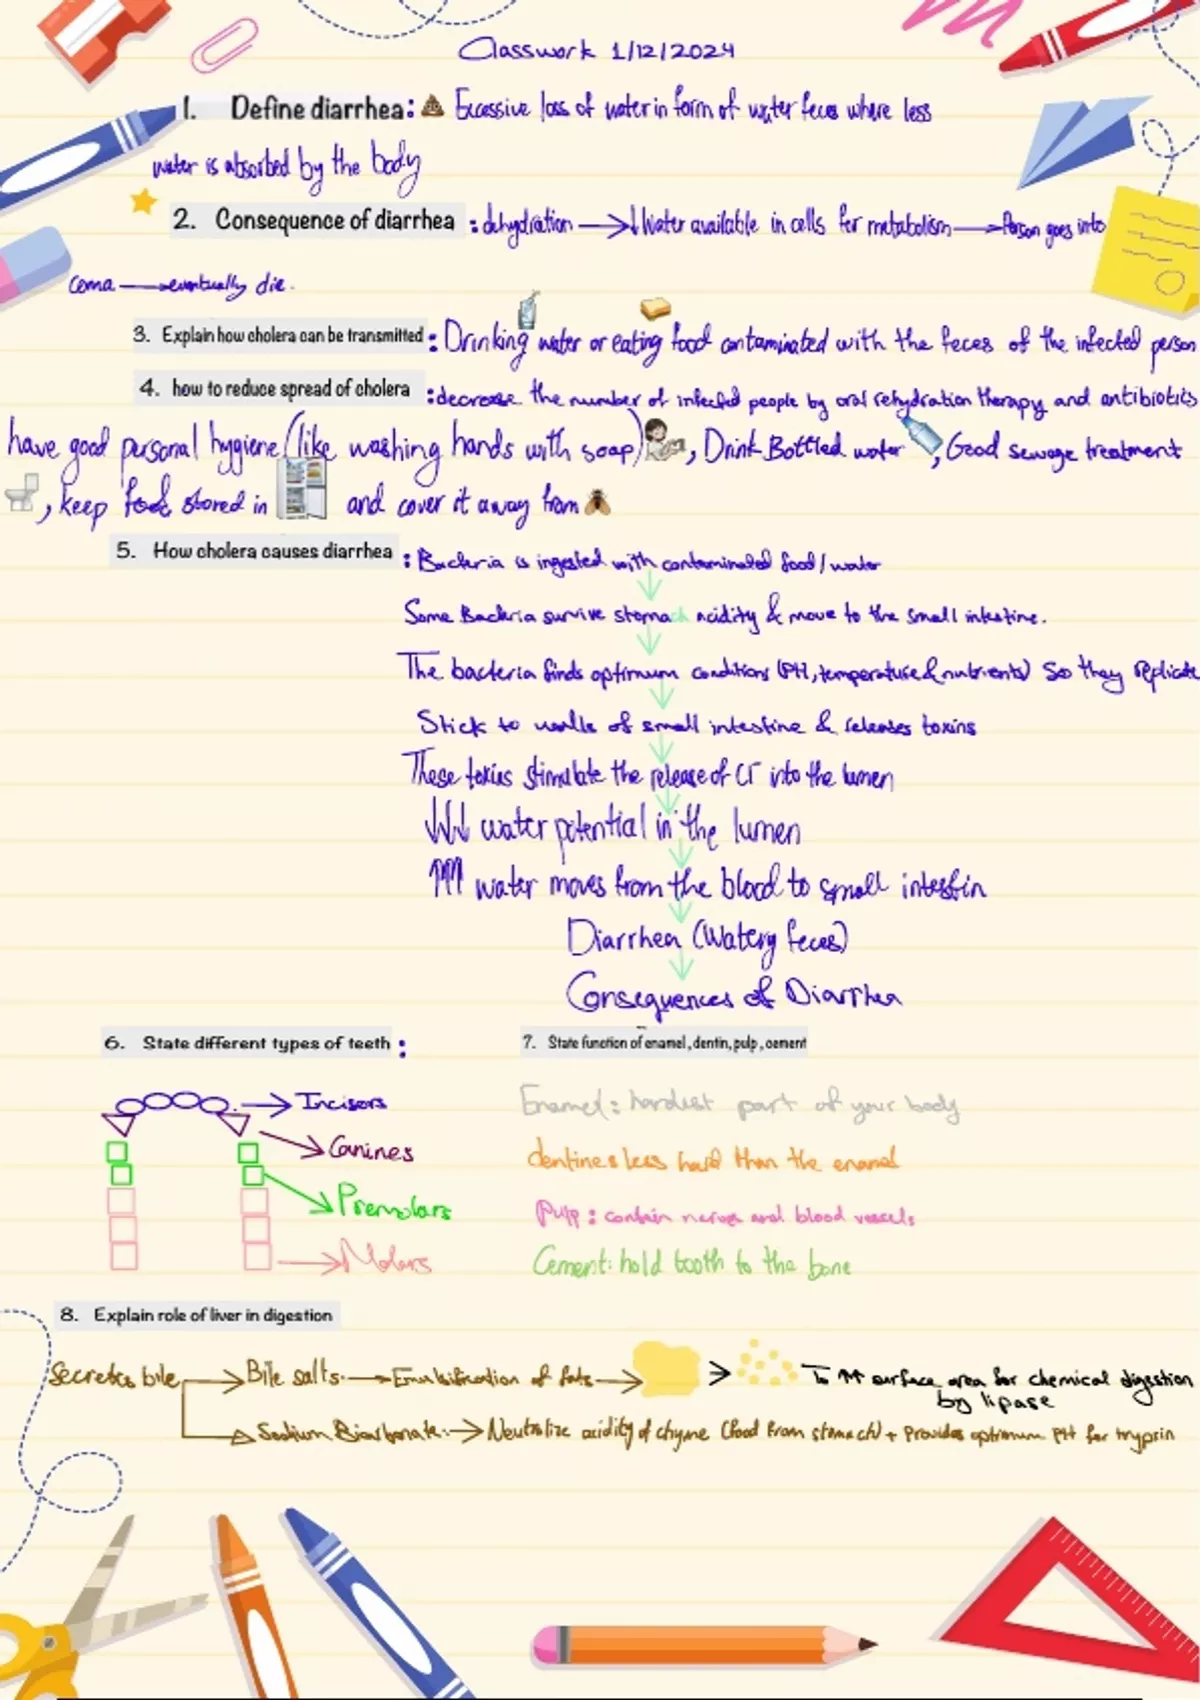 Classwork 1/12/2024
1. Define diarrhea: Excessive loss of water in form of water feces where less
water is absorbed by the body
2. Consequence of diarrhea : dehydration → ↓ Water available in cells for metabolism → Person goes into
coma → eventually die.
3. Explain how cholera can be transmitted : Drinking water or eating food contaminated with the feces of the infected person
4. how to reduce spread of cholera : decrease the number of infected people by oral rehydration therapy and antibiotics
have good personal hygiene (like washing hands with soap), Drink Bottled water, Good sewage treatment
, keep food stored in and cover it away from
5. How cholera causes diarrhea : Bacteria is ingested with contaminated food/water
Some Bacteria survive stomach acidity & move to the small intestine.
The bacteria finds optimum conditions (PH, temperature & nutrients) so they replicate
Stick to walls of small intestine & releases toxins
These toxins stimulate the release of Cl⁻ into the lumen
↓↓↓ water potential in the lumen
↑↑↑ water moves from the blood to small intestin
Diarrhea (Watery feces)
Consequences of Diarrhea
6. State different types of teeth :
Incisors
Canines
Premolars
Molars
7. State function of enamel, dentin, pulp, cement
Enamel: hardest part of your body
dentine: less hard than the enamel
Pulp: contain nerves and blood vessels
Cement: hold tooth to the bone
8. Explain role of liver in digestion
Secretes bile → Bile salts. → Emulsification of fats → > To ↑↑ surface area for chemical digestion
by lipase
→ Sodium Bicarbonate. → Neutralize acidity of chyme (food from stomach) + Provides optimum PH for trypsin